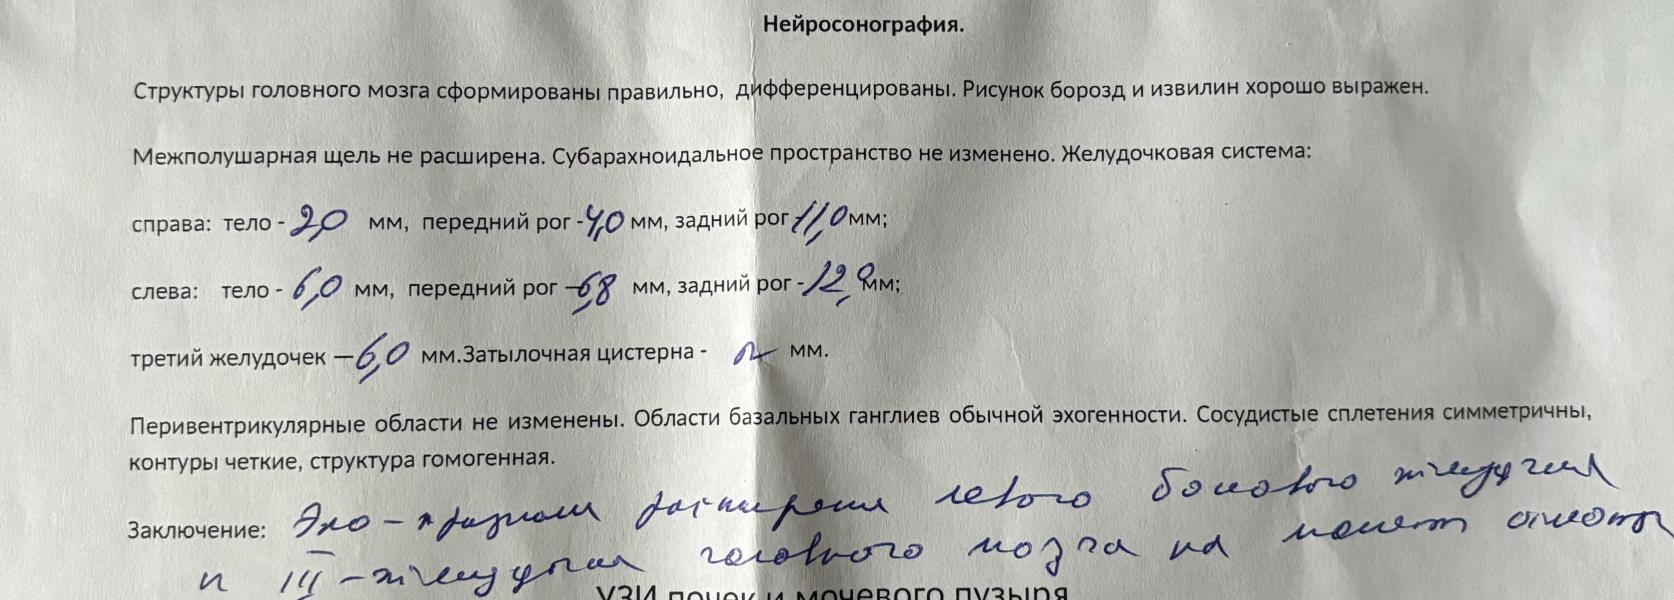 Нейросонография.
Структуры головного мозга сформированы правильно, дифференцированы. Рисунок борозд и извилин хорошо выражен.
Межполушарная щель не расширена. Субарахноидальное пространство не изменено. Желудочковая система:
справа: тело - 2,0 мм, передний рог -4,0 мм, задний рог 11,0 мм;
слева: тело - 6,0 мм, передний рог —6,8 мм, задний рог -12,0 мм;
третий желудочек —6,0 мм.Затылочная цистерна - мм.
Перивентрикулярные области не изменены. Области базальных ганглиев обычной эхогенности. Сосудистые сплетения симметричны,
контуры четкие, структура гомогенная.
Заключение: Эхо-признаки расширения левого бокового желудочка
и III-желудочка головного мозга на момент осмотра
УЗИ почек и мочевого пузыря